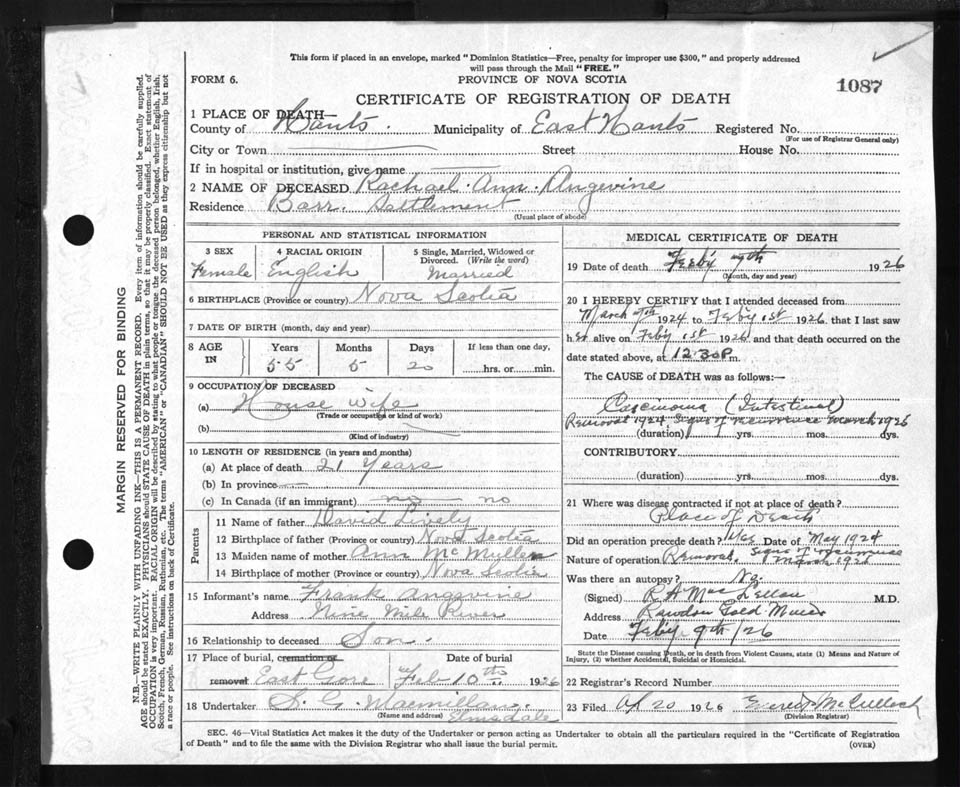 This form if placed in an envelope, marked "Dominion Statistics—Free, penalty for improper use $300," and properly addressed
will pass through the Mail "FREE."
FORM 6.
PROVINCE OF NOVA SCOTIA
1087
CERTIFICATE OF REGISTRATION OF DEATH
1 PLACE OF DEATH—
County of Hants. Municipality of East Hants Registered No.
(For use of Registrar General only)
City or Town Street House No.
If in hospital or institution, give name
2 NAME OF DECEASED Rachael Ann Angevine
Residence Barr. Settlement
(Usual place of abode)
PERSONAL AND STATISTICAL INFORMATION
3 SEX 4 RACIAL ORIGIN 5 Single, Married, Widowed or
Divorced. (Write the word)
Female English Married
6 BIRTHPLACE (Province or country) Nova Scotia
7 DATE OF BIRTH (month, day and year)
8 AGE Years Months Days If less than one day,
IN 55 5 20 hrs. or min.
9 OCCUPATION OF DECEASED
(a) House wife
(Trade or occupation or kind of work)
(b)
(Kind of industry)
10 LENGTH OF RESIDENCE (in years and months)
(a) At place of death 21 Years
(b) In province
(c) In Canada (if an immigrant) no no
Parents
11 Name of father David Lively
12 Birthplace of father (Province or country) Nova Scotia
13 Maiden name of mother Ann McMullen
14 Birthplace of mother (Province or country) Nova Scotia
15 Informant's name Frank Angevine
Address Nine Mile River
16 Relationship to deceased Son.
17 Place of burial, cremation or Date of burial
removal East Gore Feb 10th 1926
18 Undertaker S. G. Macmillan.
(Name and address) Elmsdale
MEDICAL CERTIFICATE OF DEATH
19 Date of death Feby 7th 1926
(Month, day and year)
20 I HEREBY CERTIFY that I attended deceased from
March 7th 1924 to Feby 1st 1926 that I last saw
her alive on Feby 1st 1926 and that death occurred on the
date stated above, at 12.30 P. m.
The CAUSE OF DEATH was as follows:—
Carcinoma (Intestinal)
Removal 1924. Signs of recurrence March 1925
(duration) yrs. mos. dys.
CONTRIBUTORY
(duration) yrs. mos. dys.
21 Where was disease contracted if not at place of death?
Place of Death
Did an operation precede death? Yes Date of May 1924
Nature of operation Removal. Signs of recurrence
March 1925
Was there an autopsy? No.
(Signed) R A MacLellan M.D.
Address Rawdon Gold Mines
Date Feby 9th /26
State the Disease causing Death, or in death from Violent Causes, state (1) Means and Nature of
Injury, (2) whether Accidental, Suicidal or Homicidal.
22 Registrar's Record Number
23 Filed Ap 20 1926 Everett McCulloch
(Division Registrar)
SEC. 46—Vital Statistics Act makes it the duty of the Undertaker or person acting as Undertaker to obtain all the particulars required in the "Certificate of Registration
of Death" and to file the same with the Division Registrar who shall issue the burial permit.
(OVER)
MARGIN RESERVED FOR BINDING
N.B.—WRITE PLAINLY WITH UNFADING INK—THIS IS A PERMANENT RECORD. Every item of information should be carefully supplied.
AGE should be stated EXACTLY. PHYSICIANS should STATE CAUSE OF DEATH in plain terms, so that it may be properly classified. Exact statement of
OCCUPATION is very important. RACIAL ORIGIN will be described by stating to what people or tongue the deceased person belonged, whether English, Irish,
Scotch, French, German, Russian, Ruthenian, etc. The terms "AMERICAN" or "CANADIAN" SHOULD NOT BE USED as they express citizenship but not
a race or people. See instructions on back of Certificate.